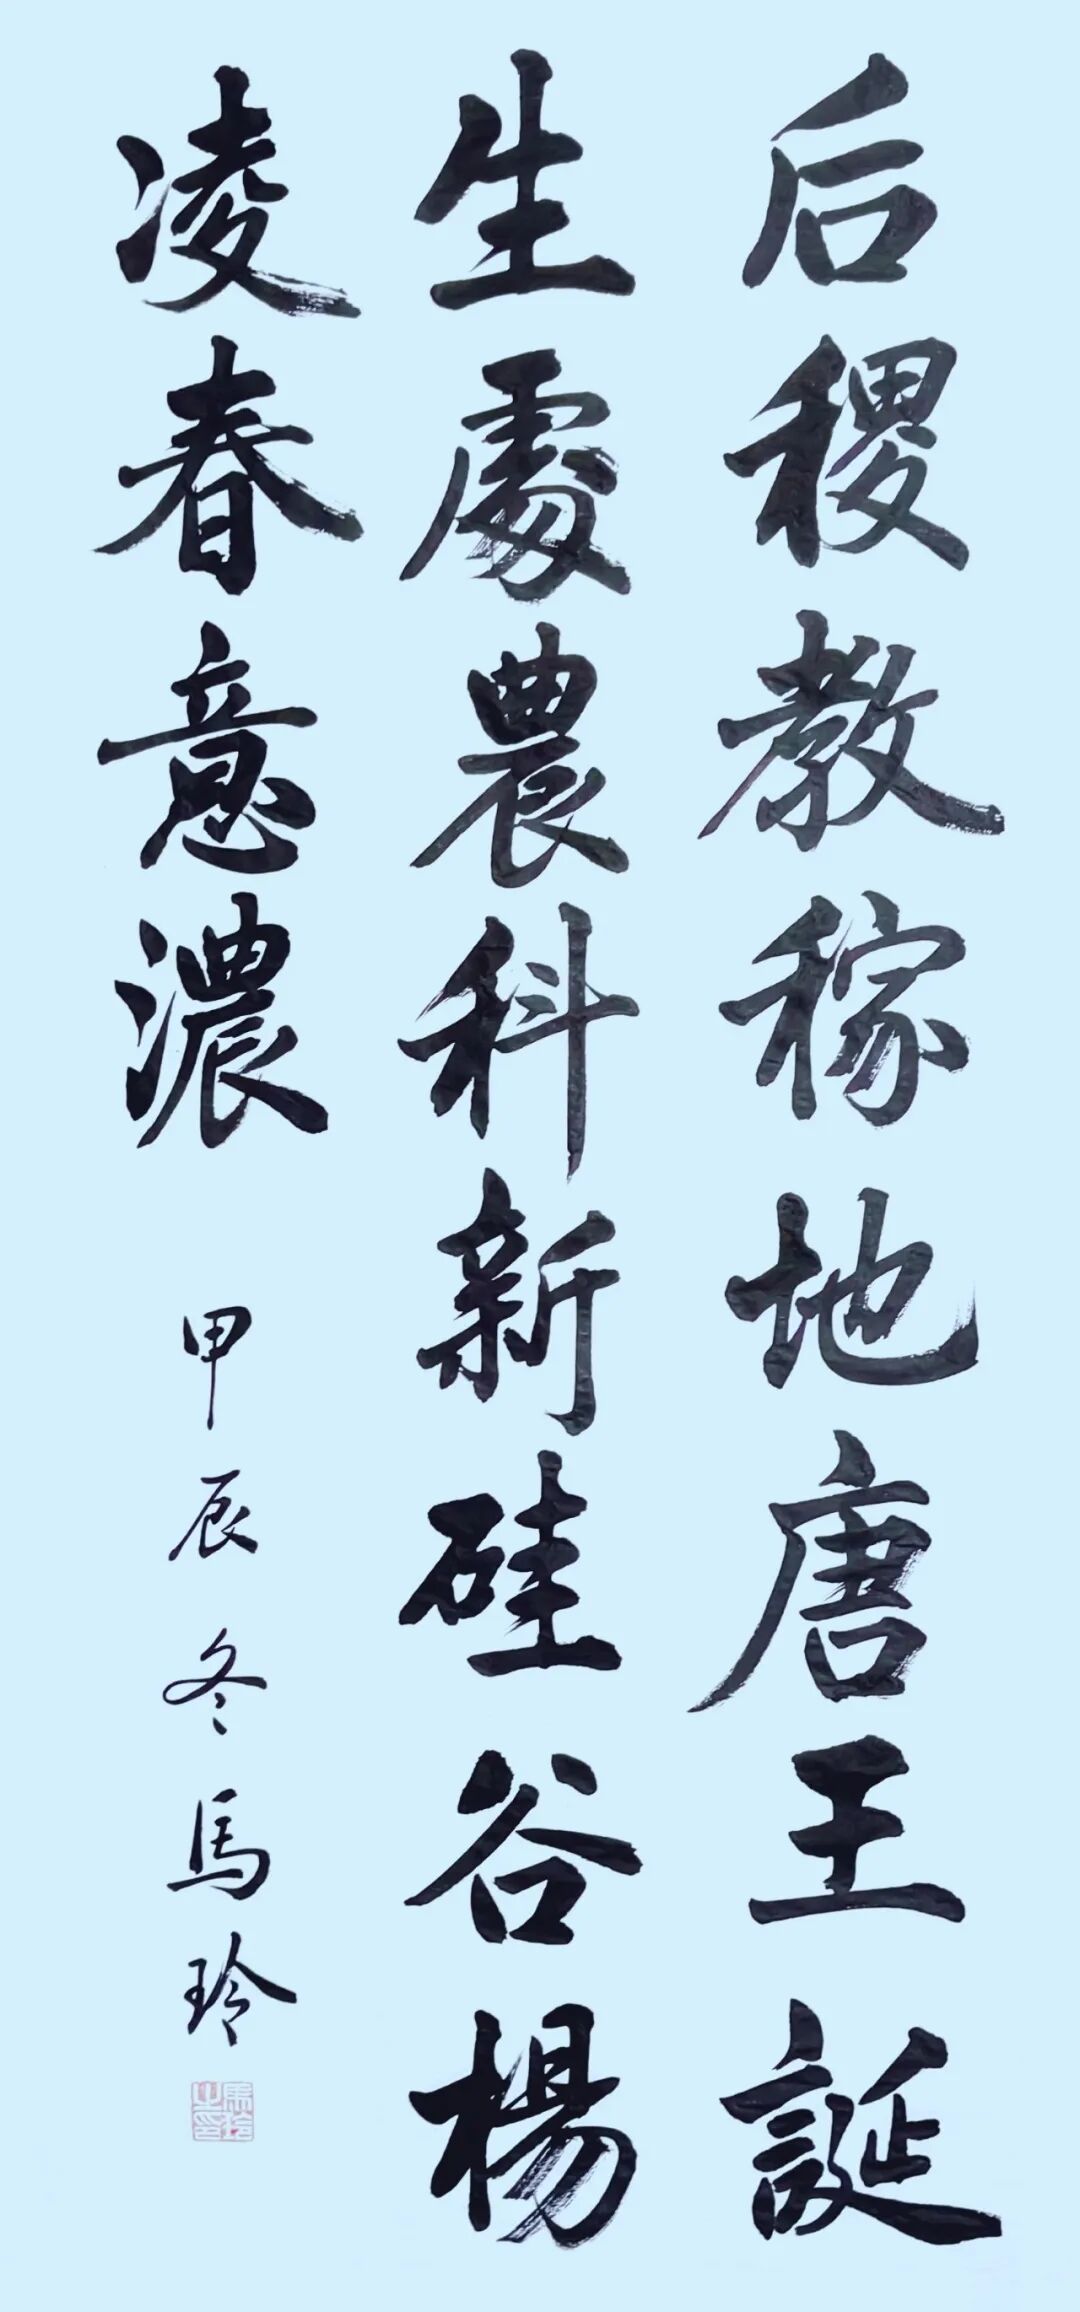 后稷教稼地唐王誕
生處農科新硅谷楊
凌春意濃
甲辰冬馬玲
馬玲之印